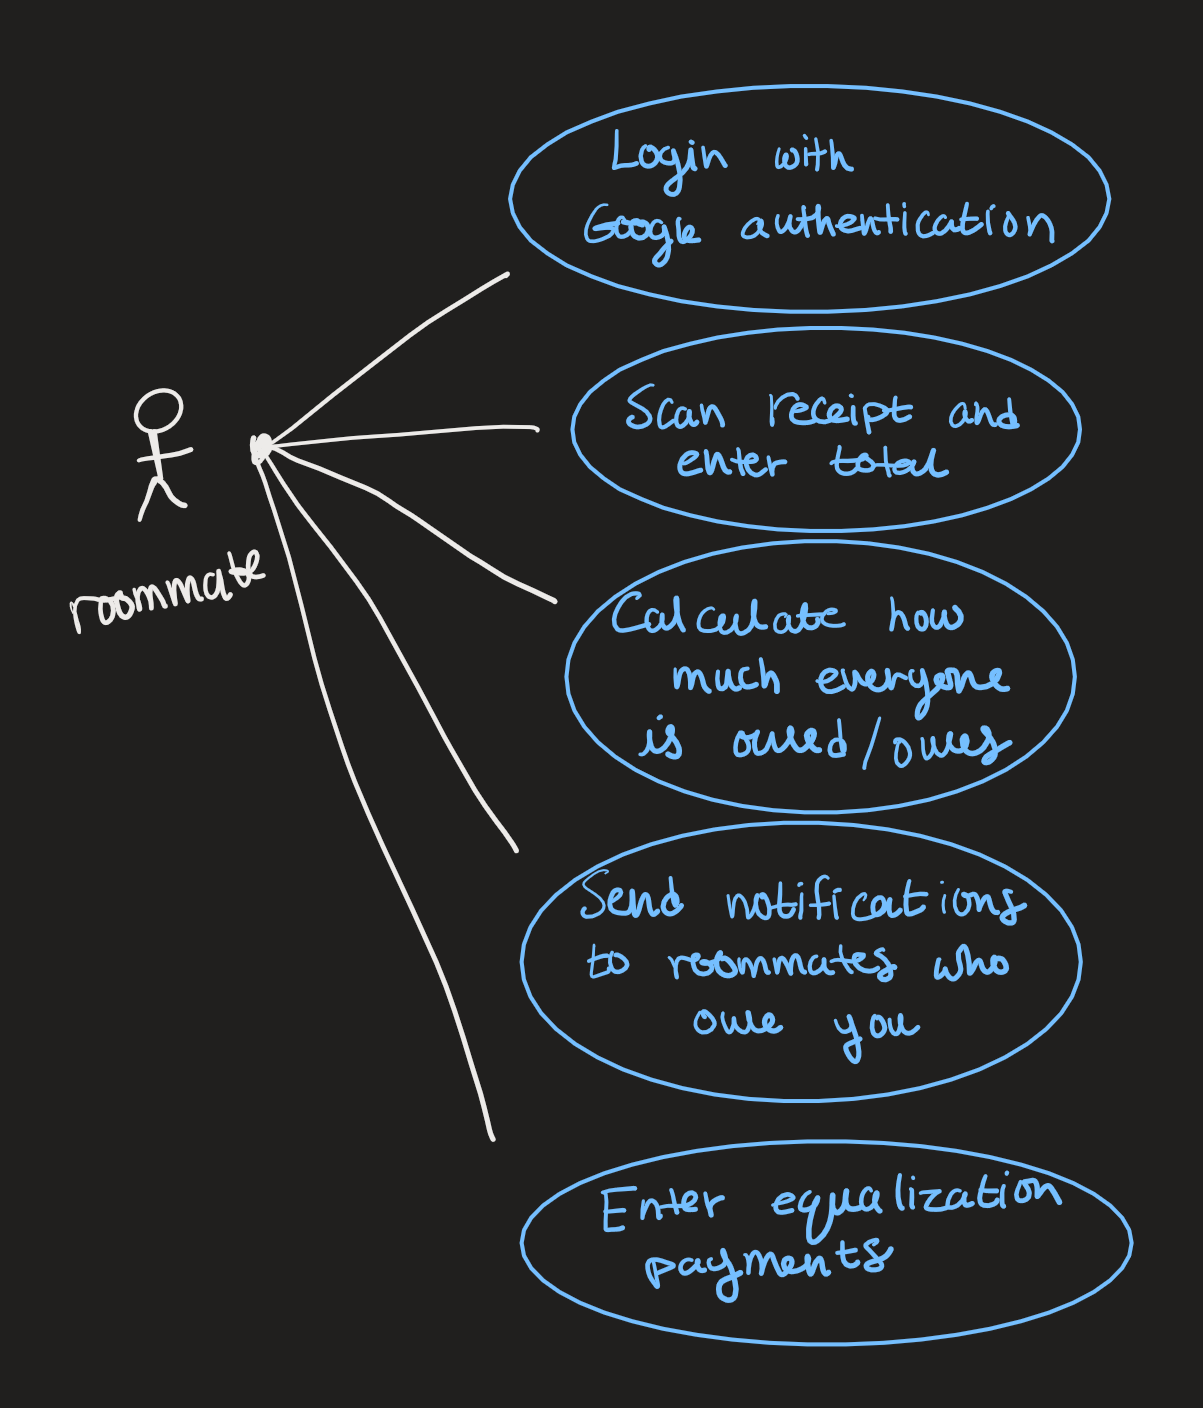 Login with
Google authentication
Scan receipt and
enter total
roommate
Calculate how
much everyone
is owed/owes
Send notifications
to roommates who
owe you
Enter equalization
payments